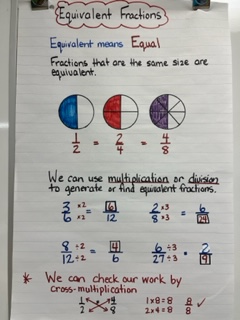 Equivalent Fractions
Equivalent means Equal
Fractions that are the same size are
equivalent.
1/2 = 2/4 = 4/8
We can use multiplication or division
to generate or find equivalent fractions.
3/6 ×2/×2 = 6/12 2/8 ×3/×3 = 6/24
8/12 ÷2/÷2 = 4/6 6/27 ÷3/÷3 = 2/9
* We can check our work by
cross-multiplication
1/2 4/8 1x8=8 8/8 ✓
2x4=8